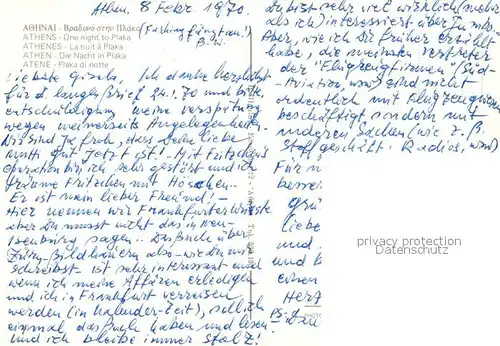 Athen. 8 Febr. 1970.
ΑΘΗΝΑΙ - Βραδινό στην Πλάκα
ATHENS - One night to Plaka
ATHENES - La nuit â Plaka
ATHEN - Die Nacht in Plaka
ATENE - Plaka di notte
Liebste Gisela, Ich danke herzlichst
für d. langen Brief 24.1.70 und bitte
entschuldigung meine verspätung
wegen meinerseits Angelegenheiten.
Wir sind so froh, dass Deine liebe
Mutti gut jetzt ist! Mit Fritzchens
Operation bin ich sehr gestört und ich
träume Fritzchen mit Höschen..
Er ist mein lieber Freund!-
Hier nennen wir Frankfurter würste
aber Du musst nicht das in Neu-
Isenburg sagen.. Das Buch über
Bildhauern also - wie Du mir
schreibst - ist sehr interessant und
wenn ich meine Affären erledigen
und ich in Frankfurt verreisen
werden (in kalender-Zeit), soll ich
einmal das Buch haben und lesen.
und ich bleibe immer Stolz!
du bist sehr viel wirklich (mehr
als ich) interessiert über
Aber, wie ich Dir früher erzählt
habe, die meisten vertreter
der "Flugzeugfirmen" (Süd-
Aviation, usw) sind nicht
ordentlich mit Flugzeugen
beschäftigt sondern mit
anderen Sachen (wie z. B.
Stoffgeschäft. Radios, usw)
Für
besse
grü
liebe
und
und b
einen
Herz
PS:
privacy protection
Datenschutz